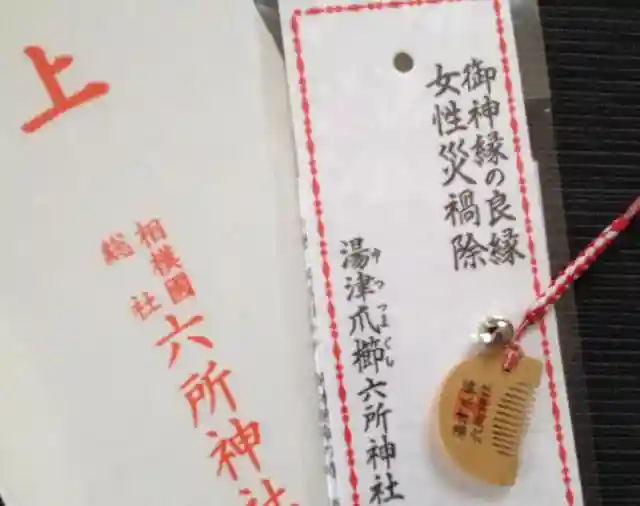 上
相模國
総社
六所神社
御神縁の良縁
女性災禍除
湯津爪櫛六所神社
ゆつつまぐし